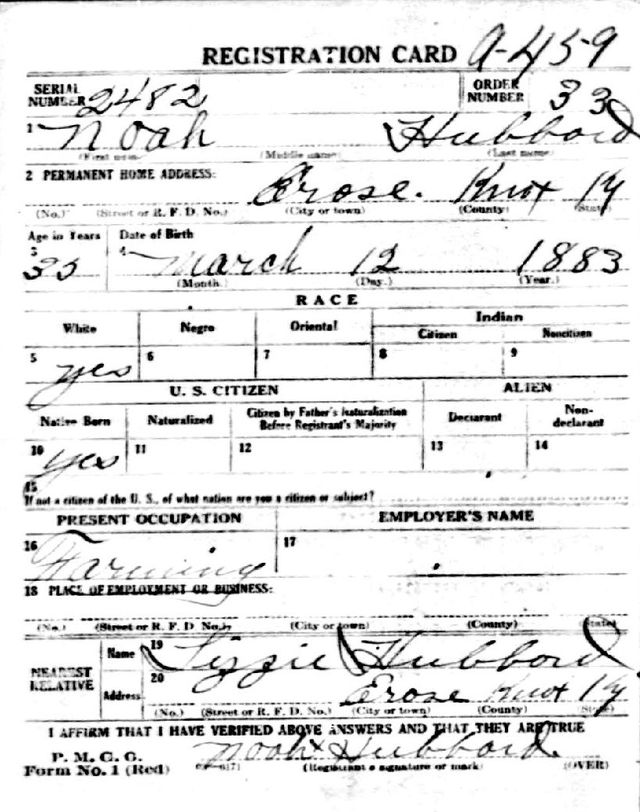 REGISTRATION CARD A-459
SERIAL NUMBER 2482 ORDER NUMBER 33
1 Noah Hubbard
(First name) (Middle name) (Last name)
2 PERMANENT HOME ADDRESS: Erose. Knox Ky
(No.) (Street or R. F. D. No.) (City or town) (County) (State)
Age in Years Date of Birth
3 35 4 March 12 1883
(Month.) (Day.) (Year.)
RACE
White Negro Oriental Indian
Citizen Noncitizen
5 yes 6 7 8 9
U. S. CITIZEN ALIEN
Native Born Naturalized Citizen by Father's Naturalization Before Registrant's Majority Declarant Non-declarant
10 yes 11 12 13 14
15
If not a citizen of the U. S., of what nation are you a citizen or subject?
PRESENT OCCUPATION EMPLOYER'S NAME
16 Farming 17
18 PLACE OF EMPLOYMENT OR BUSINESS:
(No.) (Street or R. F. D. No.) (City or town) (County) (State)
NEAREST RELATIVE Name 19 Lizzie Hubbard
Address 20 Erose Knox Ky
(No.) (Street or R. F. D. No.) (City or town) (County) (State)
I AFFIRM THAT I HAVE VERIFIED ABOVE ANSWERS AND THAT THEY ARE TRUE
P. M. G. O. Noah x Hubbard.
Form No. 1 (Red) (Registrant's signature or mark) (OVER)